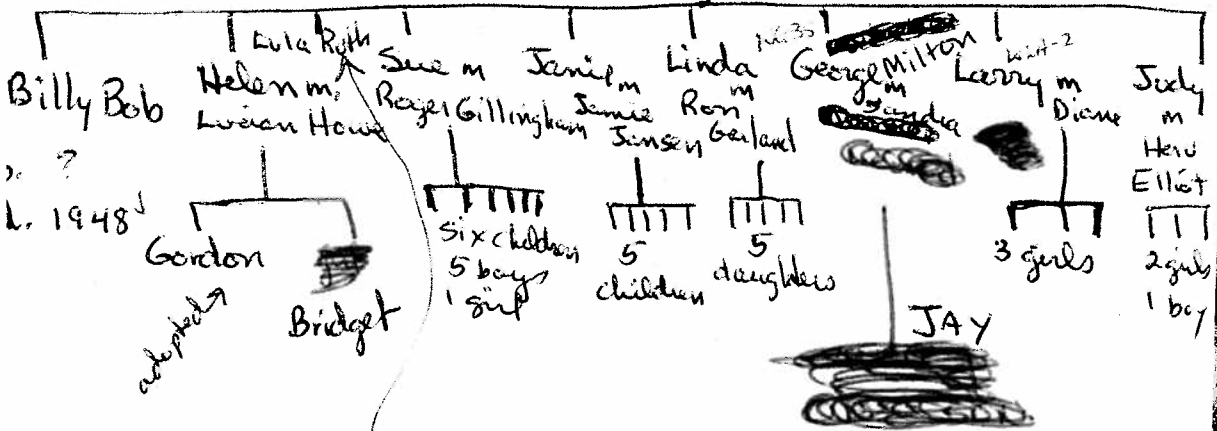 Billy Bob
?
1948
Eula Ruth
Helen m.
Lucian Howe
Gordon
adopted
Bridget
Sue m
Roger Gillingham
six children
5 boys
1 girl
Janie m
Jamie
Jansen
5
children
Linda
m
Ron
Garland
5
daughters
George Milton
m
Sandra
JAY
Larry m
Diane
3 girls
Judy
m
Elliot
2 girls
1 boy